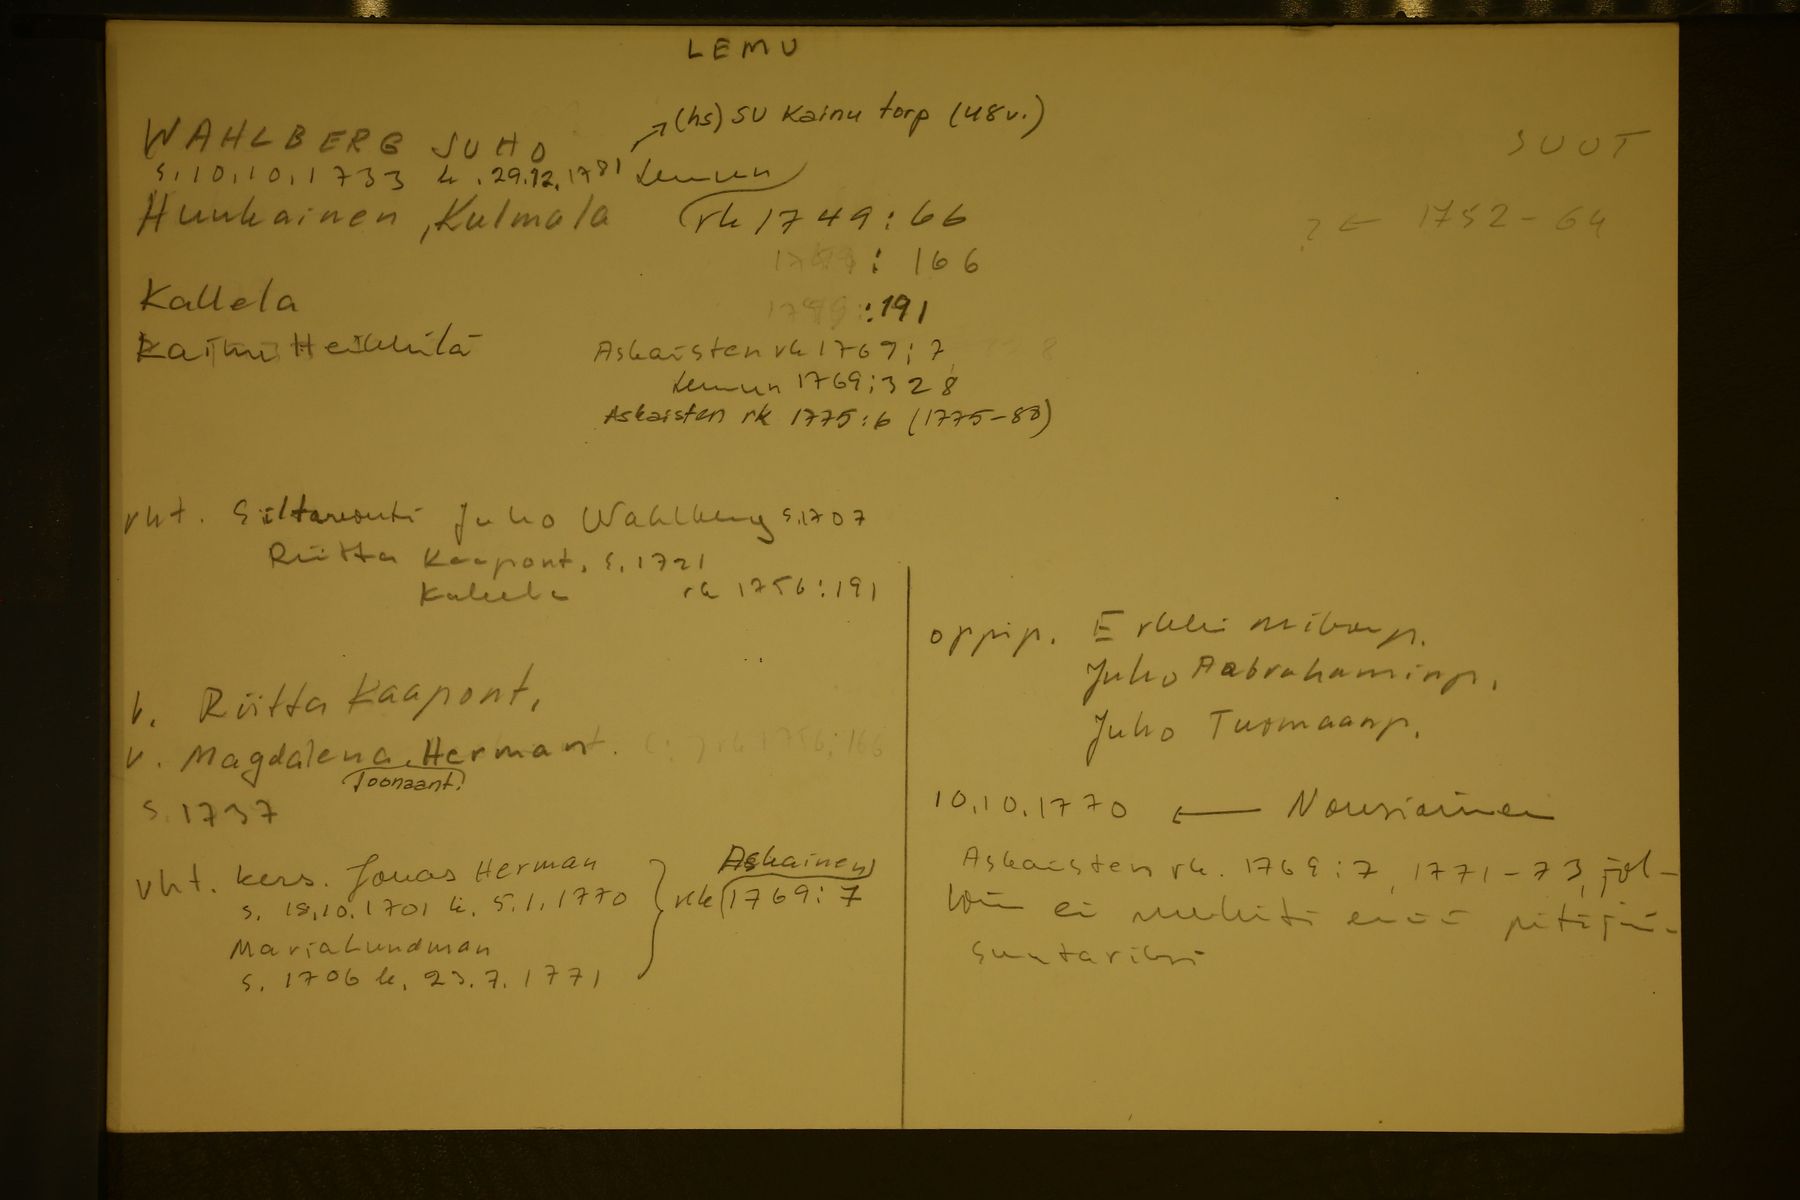 LEMU
(hs) SU Kainu torp (48v.)
WAHLBERG JUHO
SUUT
s. 10.10.1733 k. 29.12.1781 Lemun
Hunkainen, Kulmala rk 1749:66
? ← 1752-64
: 166
Kallela :191
Kainu Heikkilä Askaisten rk 1769:7
Lemun 1769:328
Askaisten rk 1775:6 (1775-88)
vht. Siltavouti Juho Wahlberg s.1707
Riitta Kaapont. s. 1721
Kallela rk 1756:191
v. Riitta Kaapont.
v. Magdalena Hermant. rk 1756:166
Joonaant.
s. 1737
vht. kers. Jonas Herman
s. 18.10.1701 k. 5.1.1770
Maria Lundman
s. 1706 k. 23.7.1771
Askainen
rk 1769:7
oppip. Erkki Mikonp.
Juho Aabrahaminp.
Juho Tuomaanp.
10.10.1770 ← Nousiainen
Askaisten rk. 1769:7, 1771-73, jol-
loin ei merkitä enää pitäjän-
suutariksi